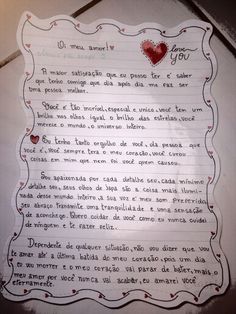 Oi meu amor!
love
YOU
A maior satisfação que eu posso ter é saber
que tenho comigo que dia após dia me faz ser
uma pessoa melhor.
Você é tão incrível, especial e único, você tem um
brilho nos olhos igual o brilho das estrelas, você
merece o mundo o universo inteiro.
Eu tenho tanto orgulho de você, da pessoa que
você é, você sempre terá o meu coração, você curou
coisas em mim que nem foi você quem causou.
Sou apaixonada por cada detalhe seu, cada mínimo
detalhe seu, seus olhos de são a coisas mais ilumi-
nadas desse mundo inteiro, a sua voz é meu som preferido,
seu abraço transmite uma tranquilidade e uma sensação
de aconchego. Quero cuidar de você como eu nunca cuidei
de ninguém e te fazer feliz.
Dependente de qualquer situação, não vou dizer que vou
te amar até a última batida do meu coração, pois um dia
eu vou morrer e o meu coração vai parar de bater, mais o
meu amor por você nunca vai acabar, eu amarei você
eternamente.